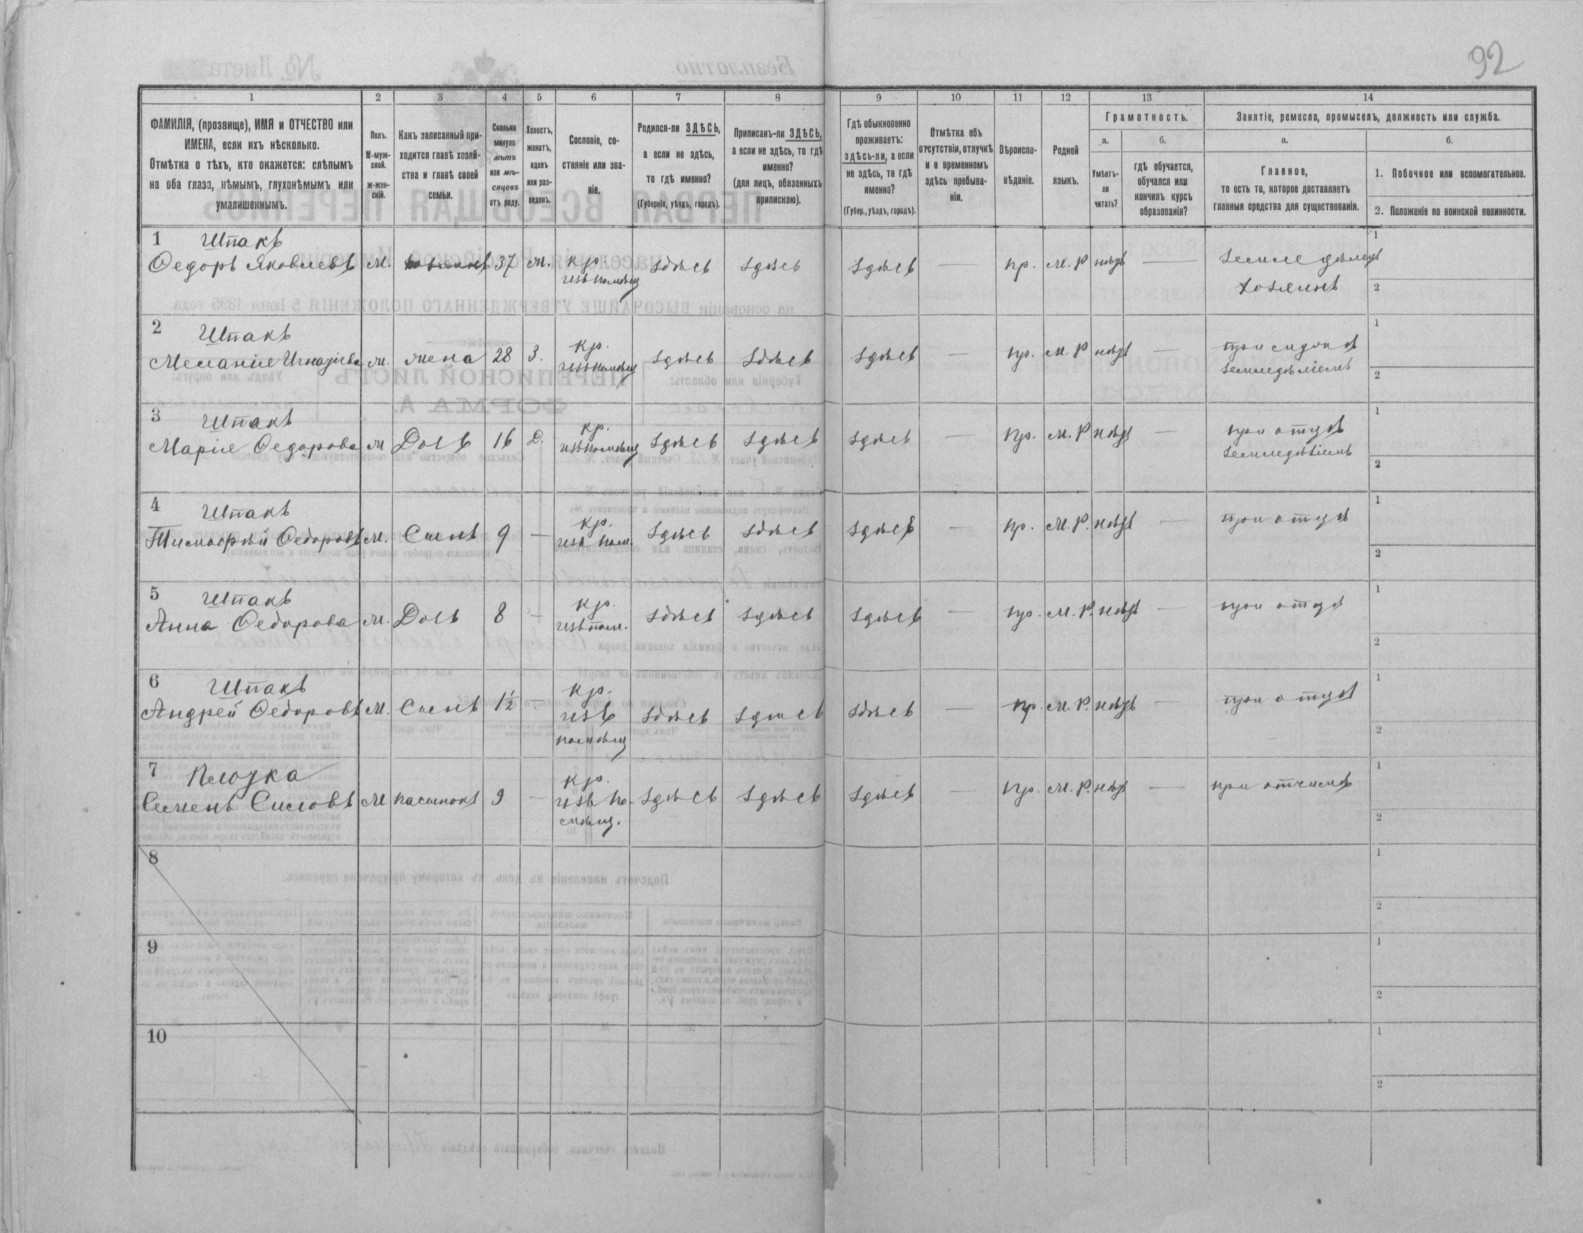 92
1
2
3
4
5
6
7
8
9
10
11
12
13
14
ФАМИЛІЯ, (прозвище), ИМЯ и ОТЧЕСТВО или
ИМЕНА, если ихъ нѣсколько.
Отмѣтка о тѣхъ, кто окажется: слѣпымъ
на оба глаза, нѣмымъ, глухонѣмымъ или
умалишеннымъ.
Полъ.
М-муж-
ской.
ж-жен-
скій.
Какъ записанный при-
ходится главѣ хозяй-
ства и главѣ своей
семьи.
Сколько
минуло
лѣтъ
или мѣ-
сяцевъ
отъ роду.
Холостъ,
женатъ,
вдовъ
или раз-
веденъ.
Сословіе, со-
стояніе или зва-
ніе.
Родился-ли ЗДѢСЬ,
а если не здѣсь,
то гдѣ именно?
(Губернія, уѣздъ, городъ).
Приписанъ-ли ЗДѢСЬ,
а если не здѣсь, то гдѣ
именно?
(для лицъ, обязанныхъ
припискою).
Гдѣ обыкновенно
проживаетъ:
здѣсь-ли, а если
не здѣсь, то гдѣ
именно?
(Губер., уѣздъ, городъ).
Отмѣтка объ
отсутствіи, отлучкѣ
и о временномъ
здѣсь пребыва-
ніи.
Вѣроиспо-
вѣданіе.
Родной
языкъ.
Грамотность.
а.
Умѣетъ-
ли
читать?
б.
гдѣ обучается,
обучался или
кончилъ курсъ
образованія?
Занятіе, ремесло, промыселъ, должность или служба.
а.
Главное,
то есть то, которое доставляетъ
главныя средства для существованія.
б.
1. Побочное или вспомогательное.
2. Положеніе по воинской повинности.
1 Шпакъ
Ѳедоръ Яковлевъ м. 37 ж. кр. здѣсь здѣсь здѣсь пр. М. Р. нѣтъ — земледѣлецъ
изъ помѣщ хозяинъ
1
2
2 Шпакъ
Меланія Игнатіева ж. жена 28 з. кр. здѣсь здѣсь здѣсь — пр. М. Р нѣтъ — при мужѣ
изъ помѣщ земледѣліемъ
1
2
3 Шпакъ
Марія Ѳедорова ж Дочь 16 Д. кр. здѣсь здѣсь здѣсь — пр. М. Р нѣтъ — при отцѣ
изъ помѣщ земледѣліемъ
1
2
4 Шпакъ
Тимофѣй Ѳедоровъ м. Сынъ 9 — кр. здѣсь здѣсь здѣсь — пр. М. Р. нѣтъ — при отцѣ
изъ пом.
1
2
5 Шпакъ
Анна Ѳедорова ж. Дочь 8 — кр. здѣсь здѣсь здѣсь — пр. М. Р. нѣтъ — при отцѣ
изъ пом.
1
2
6 Шпакъ
Андрей Ѳедоровъ м. Сынъ 1½ — кр. здѣсь здѣсь здѣсь — пр. М. Р. нѣтъ — при отцѣ
изъ
помѣщ
1
2
7
Семенъ Силовъ м пасынокъ 9 — кр. здѣсь здѣсь здѣсь — пр. М. Р. нѣтъ — при отчимѣ
изъ по-
мѣщ.
1
2
8
1
2
9
1
2
10
1
2